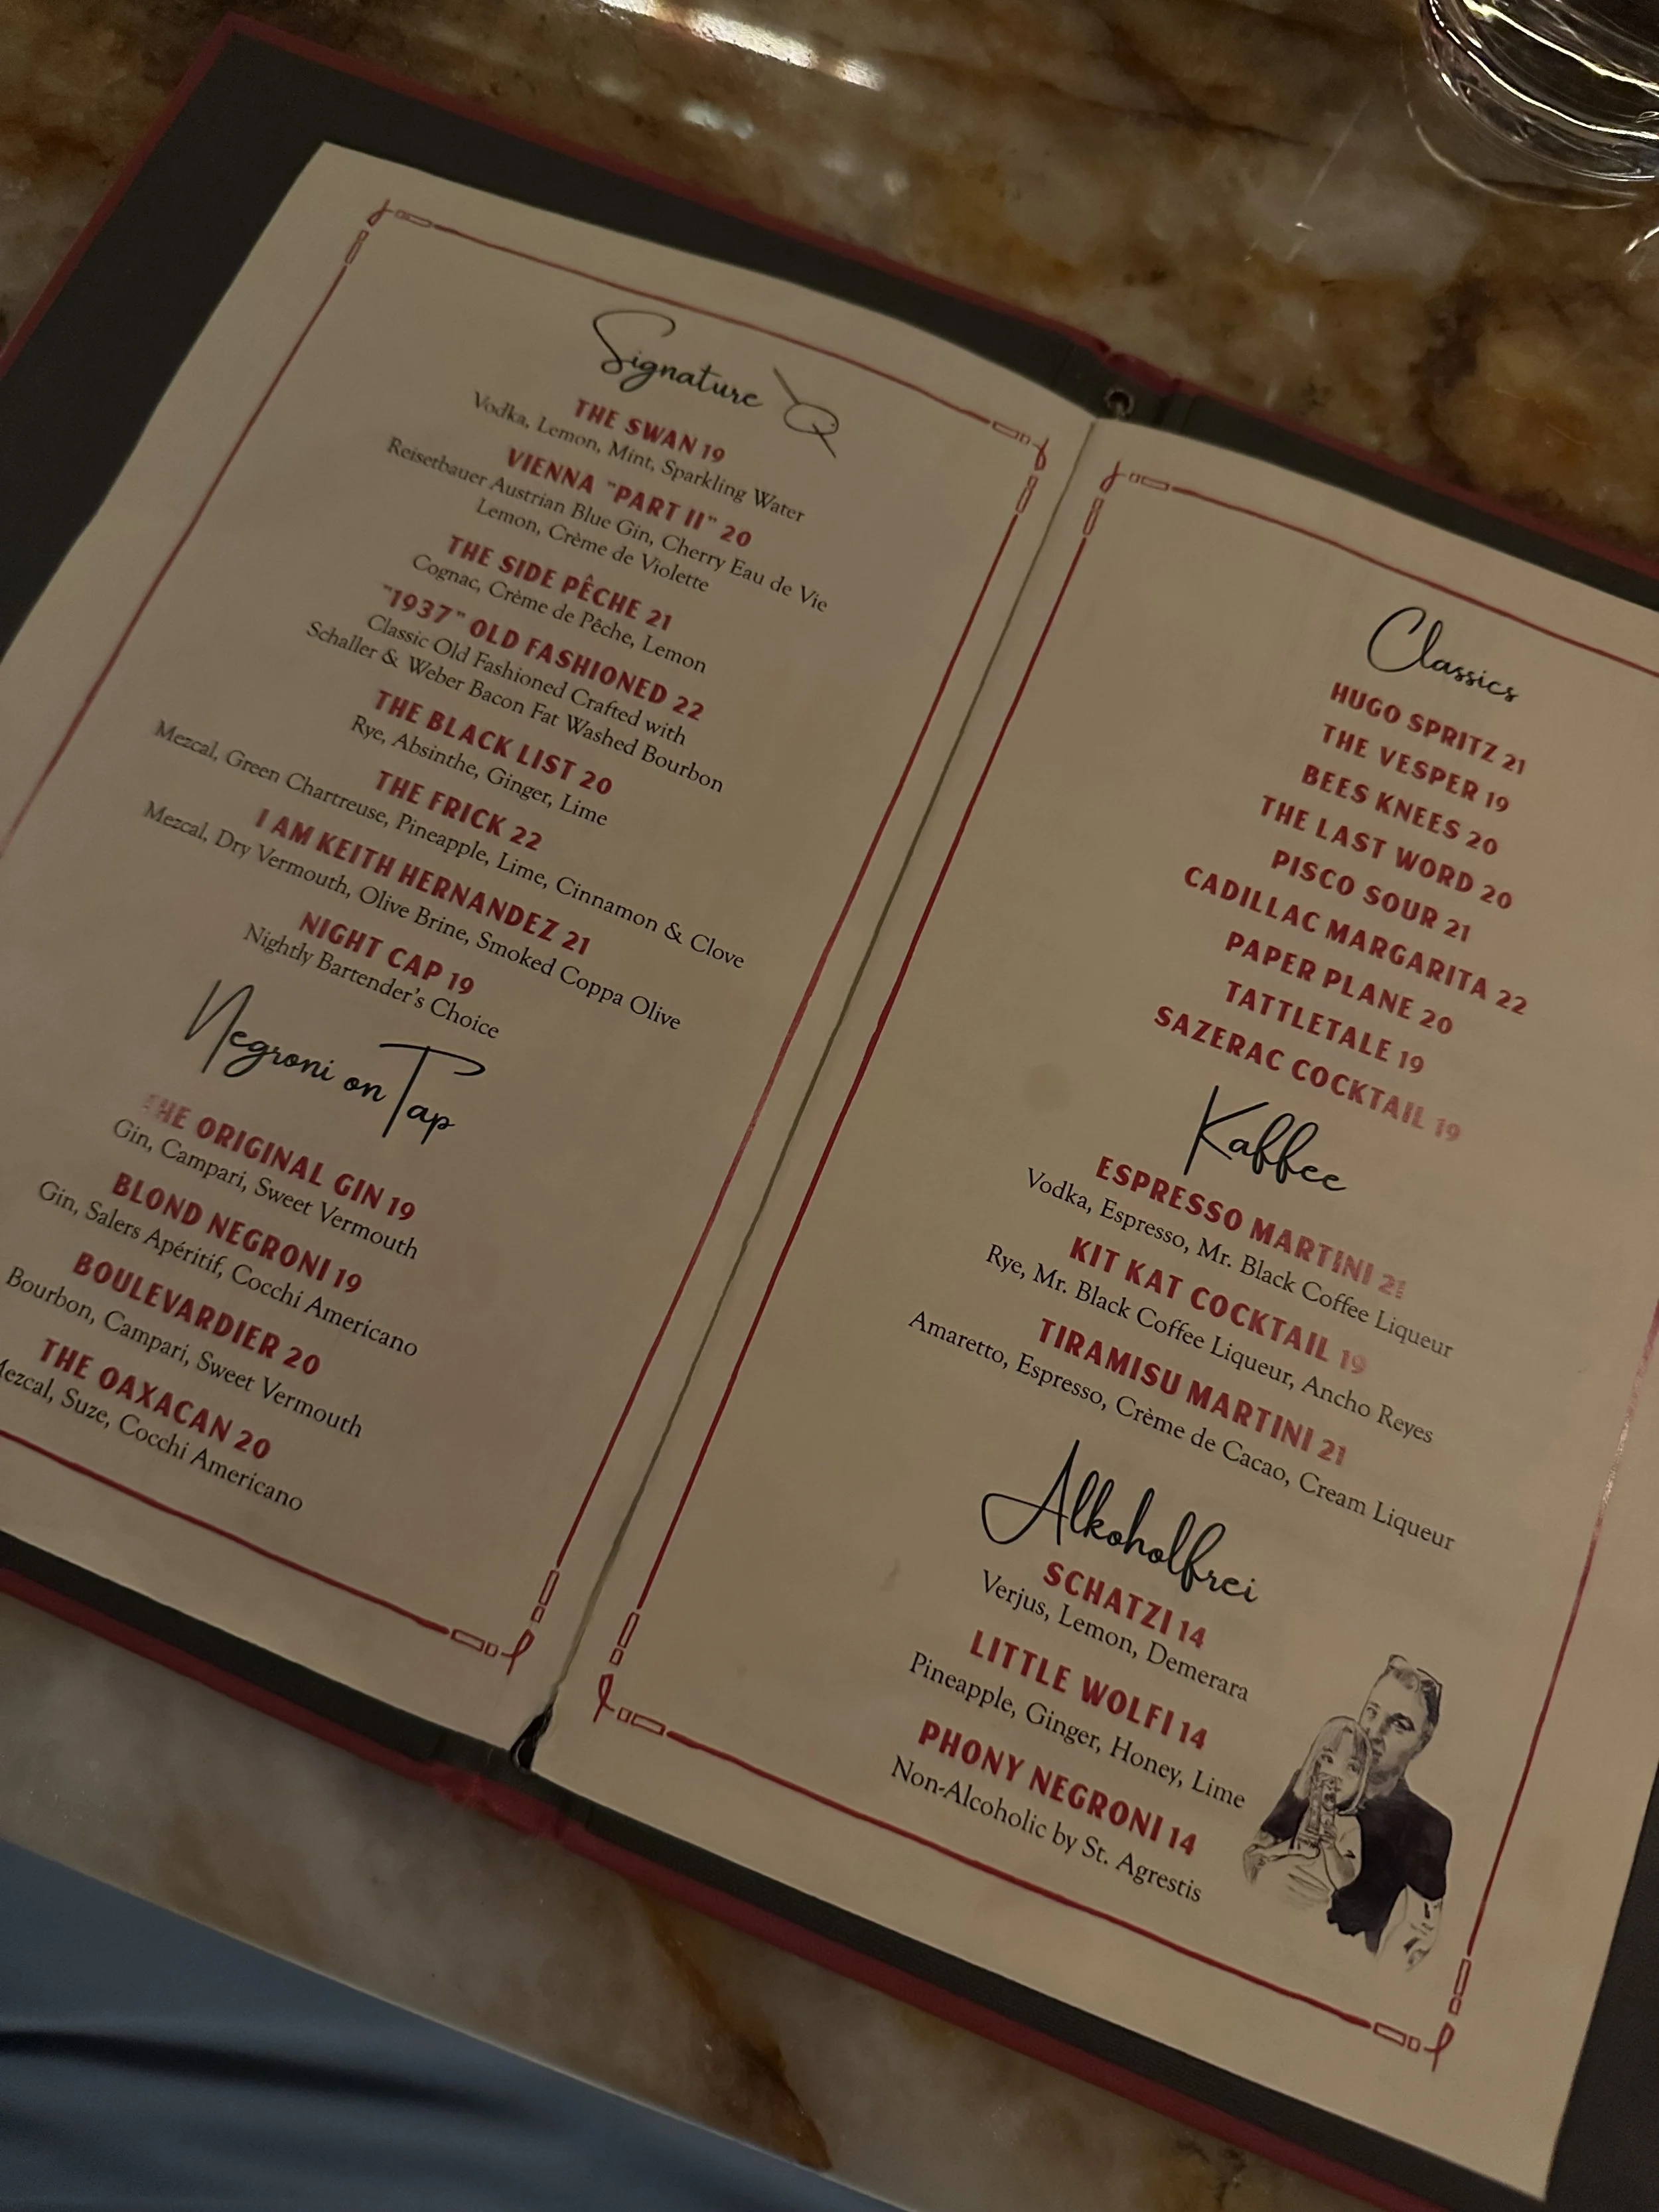 Signature
THE SWAN 19
Vodka, Lemon, Mint, Sparkling Water
VIENNA "PART II" 20
Reisetbauer Austrian Blue Gin, Cherry Eau de Vie
Lemon, Crème de Violette
THE SIDE PÊCHE 21
Cognac, Crème de Pêche, Lemon
"1937" OLD FASHIONED 22
Classic Old Fashioned Crafted with
Schaller & Weber Bacon Fat Washed Bourbon
THE BLACK LIST 20
Rye, Absinthe, Ginger, Lime
THE FRICK 22
Mezcal, Green Chartreuse, Pineapple, Lime, Cinnamon & Clove
I AM KEITH HERNANDEZ 21
Mezcal, Dry Vermouth, Olive Brine, Smoked Coppa Olive
NIGHT CAP 19
Nightly Bartender's Choice
Negroni on Tap
THE ORIGINAL GIN 19
Gin, Campari, Sweet Vermouth
BLOND NEGRONI 19
Gin, Salers Apéritif, Cocchi Americano
BOULEVARDIER 20
Bourbon, Campari, Sweet Vermouth
THE OAXACAN 20
Mezcal, Suze, Cocchi Americano
Classics
HUGO SPRITZ 21
THE VESPER 19
BEES KNEES 20
THE LAST WORD 20
PISCO SOUR 21
CADILLAC MARGARITA 22
PAPER PLANE 20
TATTLETALE 19
SAZERAC COCKTAIL 19
Kaffee
ESPRESSO MARTINI 21
Vodka, Espresso, Mr. Black Coffee Liqueur
KIT KAT COCKTAIL 19
Rye, Mr. Black Coffee Liqueur, Ancho Reyes
TIRAMISU MARTINI 21
Amaretto, Espresso, Crème de Cacao, Cream Liqueur
Alkoholfrei
SCHATZI 14
Verjus, Lemon, Demerara
LITTLE WOLFI 14
Pineapple, Ginger, Honey, Lime
PHONY NEGRONI 14
Non-Alcoholic by St. Agrestis